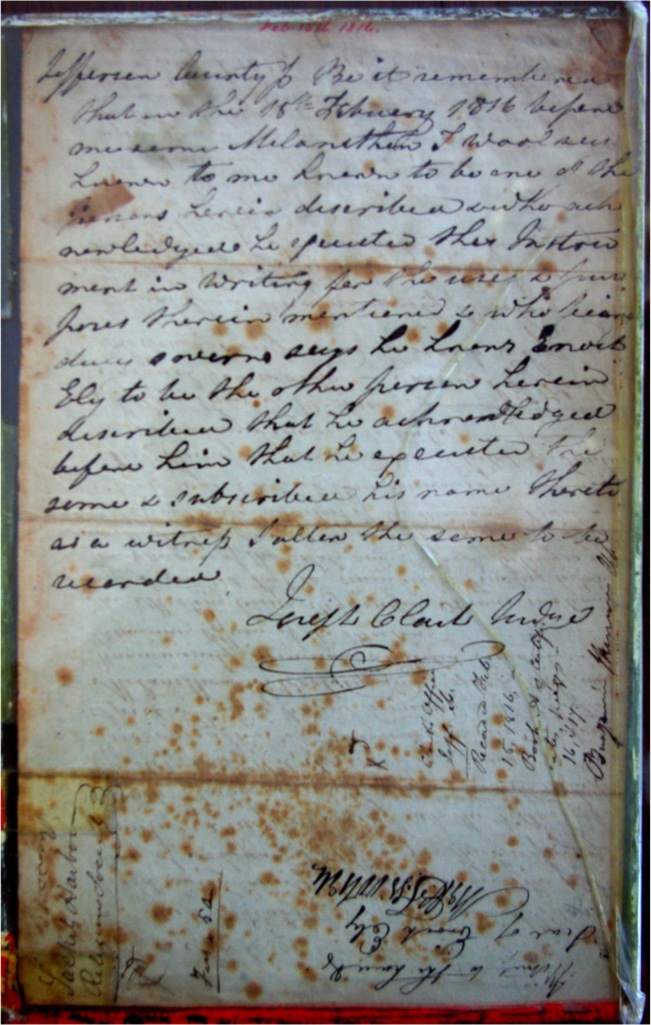 Feb 15th 1816.
Jefferson County ss Be it remembered
that on the 15th Febuery 1816 before
me came Melancthon T Woolsey
known to me known to be one of the
persons herein described & who ack
nowledged he executed this Instru
ment in writing for the uses & pur
poses therein mentioned & who being
duly sworn says he knows Enoch
Ely to be the other person herein
described that he acknowledged
before him that he executed the
same & subscribed his name thereto
as a witness I allow the same to be
recorded
Joseph Clark Judge
Clerks Office
Jeff Co.
Recorded Feb
15, 1816, in
Book A of
16, & 17.
Benjamin
Sackets Harbor
Fees 52
Witness to the hand &
Seal of Enoch Ely